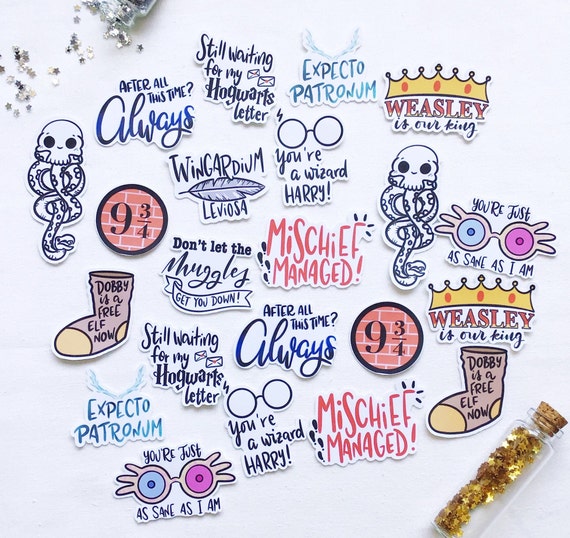 Still waiting
for my
Hogwarts
letter
EXPECTO
PATRONUM
WEASLEY
is our king
AFTER ALL
THIS TIME?
Always
You're
a wizard
HARRY!
WINGARDIUM
LEVIOSA
9 3/4
YOU'RE JUST
AS SANE AS I AM
MISCHIEF
MANAGED!
Don't let the
Muggles
GET YOU DOWN!
DOBBY
is a
FREE
ELF
NOW
AFTER ALL
THIS TIME?
Always
9 3/4
WEASLEY
is our king
Still waiting
for my
Hogwarts
letter
DOBBY
is a
FREE
ELF
NOW
EXPECTO
PATRONUM
You're
a wizard
HARRY!
MISCHIEF
MANAGED!
YOU'RE JUST
AS SANE AS I AM